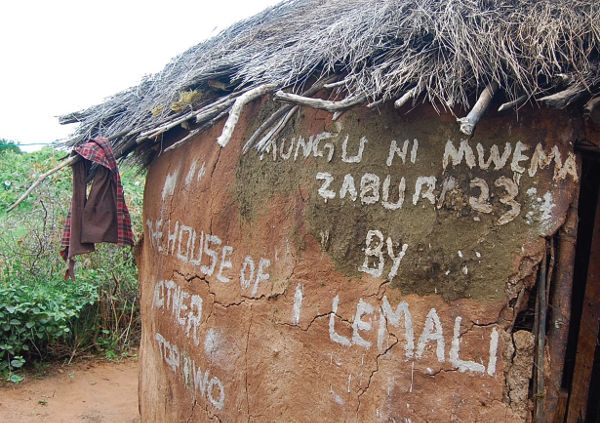 MUNGU NI MWEMA
ZABURI 23
BY
I LEMALI
THE HOUSE OF
MOTHER